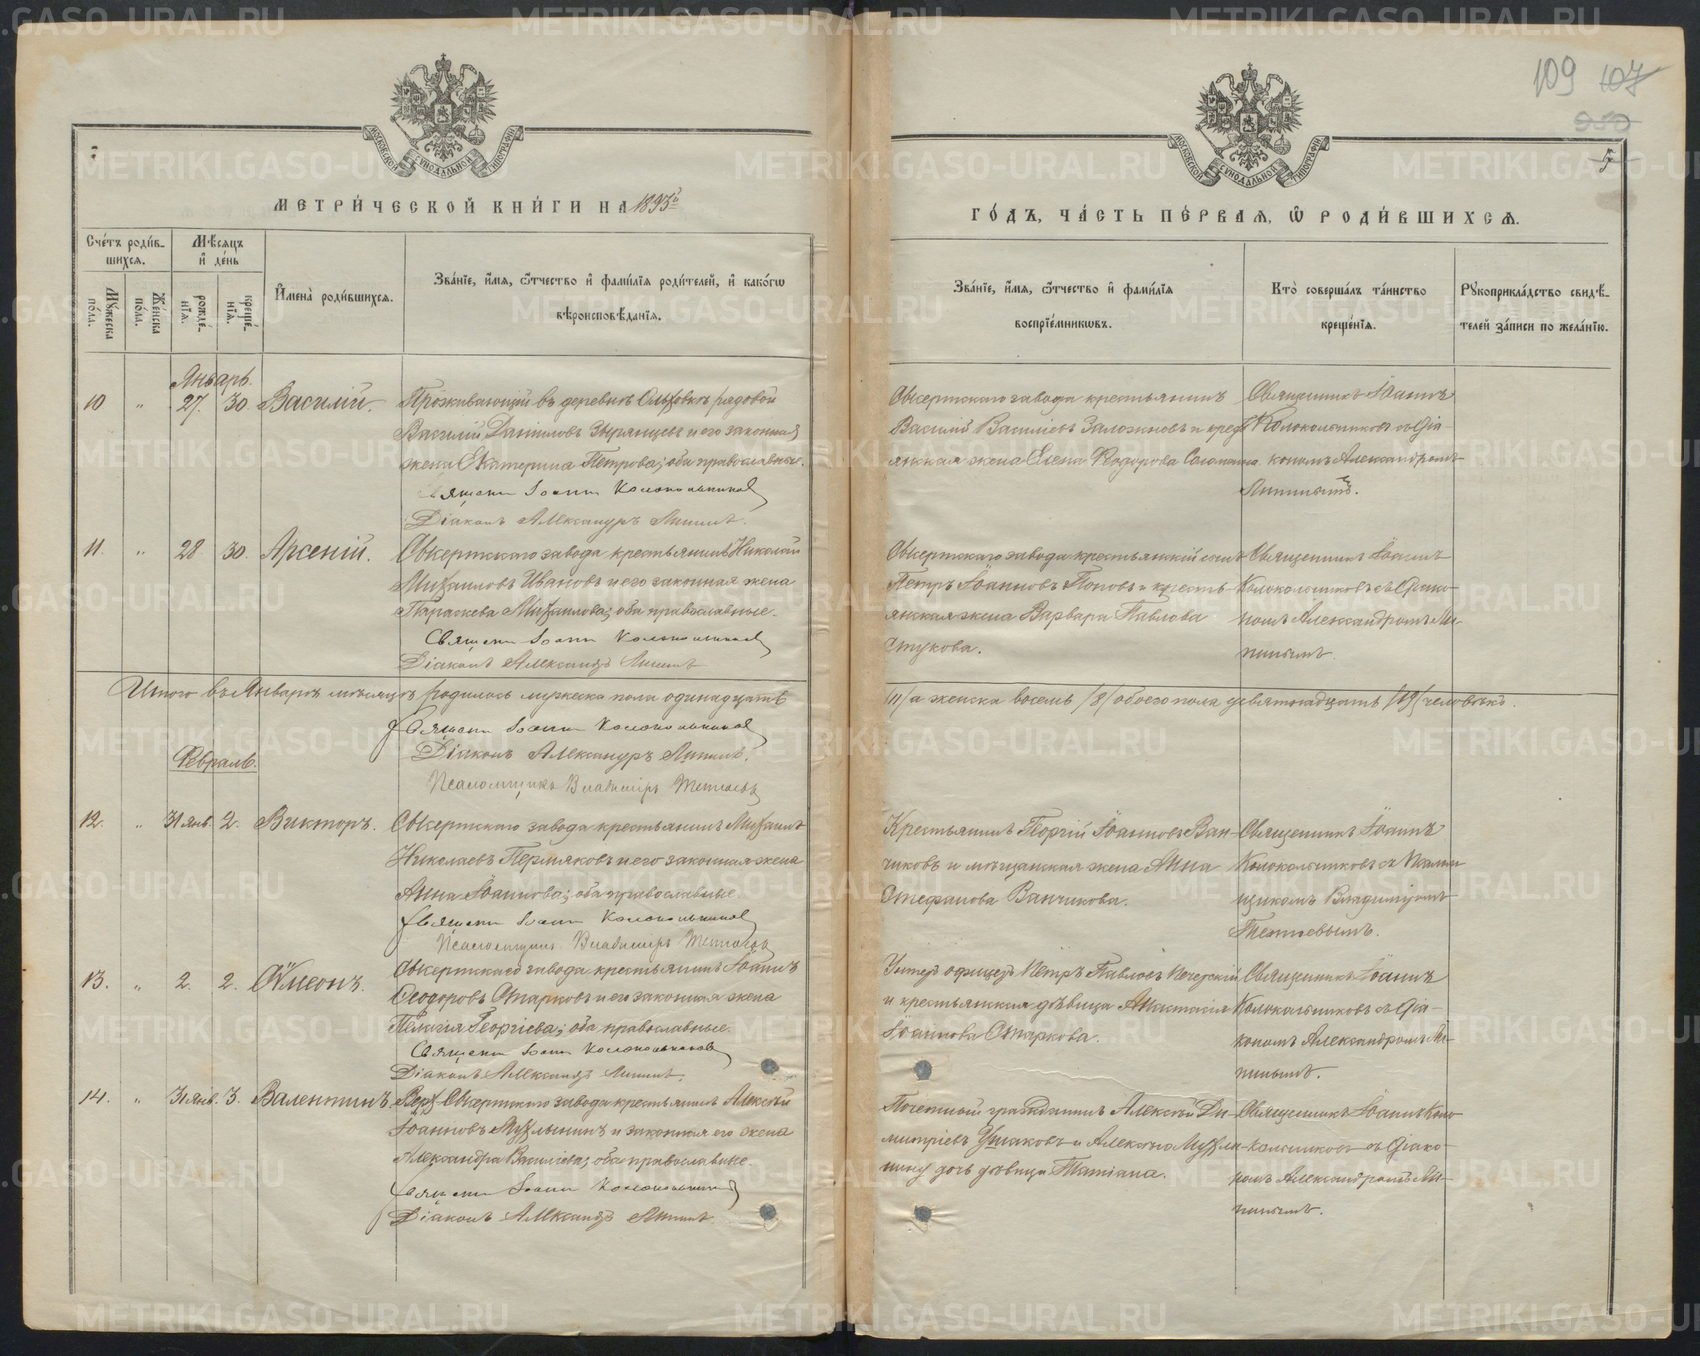 METRIKI.GASO-URAL.RU
109 107
950
5
МОСКОВСКОЙ СУНОДАЛЬНОЙ ТИПОГРАФІИ
МОСКОВСКОЙ СУНОДАЛЬНОЙ ТИПОГРАФІИ
МЕТРИ́ЧЕСКОЙ КНИ́ГИ НА 1893й
ГО́ДЪ, ЧА́СТЬ ПЕ́РВАЯ, Ѽ РОДИ́ВШИХСѦ.
Сче́тъ роди́в-
шихся.
Мѣ́сяцъ
и҆ де́нь
Му́жеска
по́ла.
Же́нска
по́ла.
рожде́-
нїя.
креще́-
нїя.
И҆мена̀ роди́вшихся.
Зва́нїе, и҆́мя, ѻ҆́тчество и҆ фами́лїя роди́телей, и҆ како́гѡ
вѣроисповѣ́данїя.
Зва́нїе, и҆́мя, ѻ҆́тчество и҆ фами́лїя
воспрїе́мникѡвъ.
Кто̀ соверша́лъ та́инство
креще́нїя.
Рꙋкоприкла́дство свидѣ́-
телей за́писи по жела́нїю.
Январь.
10 " 27. 30. Василій.
Проживающій въ деревнѣ Ольховкѣ рядовой
Василій Даниловъ Зырянцевъ и его законная
жена Екатерина Петрова; оба православные.
Священн Іоанн Колокольников
Діаконъ Александръ
Сысертскаго завода крестьянинъ
Василій Василіевъ и крест
янская жена Елена Ѳедорова
Священникъ Іоаннъ
Колокольниковъ съ Діа-
кономъ Александромъ
11. " 28 30. Арсеній.
Сысертскаго завода крестьянинъ Николай
Михаиловъ Ивановъ и его законная жена
Параскева Михаилова; оба православные.
Священн Іоанн Колокольников
Діаконъ Александр
Сысертскаго завода крестьянскій сынъ
Петръ Іоанновъ Поповъ и кресть-
янская жена Варвара Павлова
Священникъ Іоаннъ
Колокольниковъ съ Діако-
номъ Александромъ
Итого въ Январѣ мѣсяцѣ родилось мужеска пола одинадцать
/11/ а женска восемь /8/ обоего пола девятнадцать /19/ человѣкъ.
Священн Іоанн Колокольников
Діаконъ Александръ
Псаломщикъ Владиміръ
Февраль.
12. " 31 янв. 2. Викторъ.
Сысертскаго завода крестьянинъ Михаилъ
Николаевъ Пермяковъ и его законная жена
Анна Іоаннова; оба православные.
Священн Іоанн Колокольников
Псаломщикъ Владиміръ
Крестьянинъ Георгій Іоанновъ Ван-
чиковъ и мѣщанская жена Анна
Стефанова Ванчикова.
Священникъ Іоаннъ
Колокольниковъ съ Псалом
щикомъ Владиміромъ
13. " 2. 2. Сѵмеонъ.
Сысертскаго завода крестьянинъ Іоаннъ
Ѳеодоровъ Старковъ и его законная жена
Пелагія Георгіева; оба православные.
Священн Іоанн Колокольников
Діаконъ Александр
Унтеръ офицеръ Петръ Павловъ
и крестьянская дѣвица Анастасія
Іоаннова Старкова.
Священникъ Іоаннъ
Колокольниковъ съ Діа-
кономъ Александромъ
14. " 31 янв. 3. Валентинъ.
Верх-Сысертскаго завода крестьянинъ Алексѣй
Іоанновъ Мухлынинъ и законная его жена
Александра Василіева; оба православные.
Священн Іоанн Колокольников
Діаконъ Александр
Почетный гражданинъ Алексѣй Ди-
митріевъ Ушаковъ и Алексѣя Мухлы-
нину дочь дѣвица Татіана.
Священникъ Іоаннъ Коло-
кольниковъ съ Діако-
номъ Александромъ